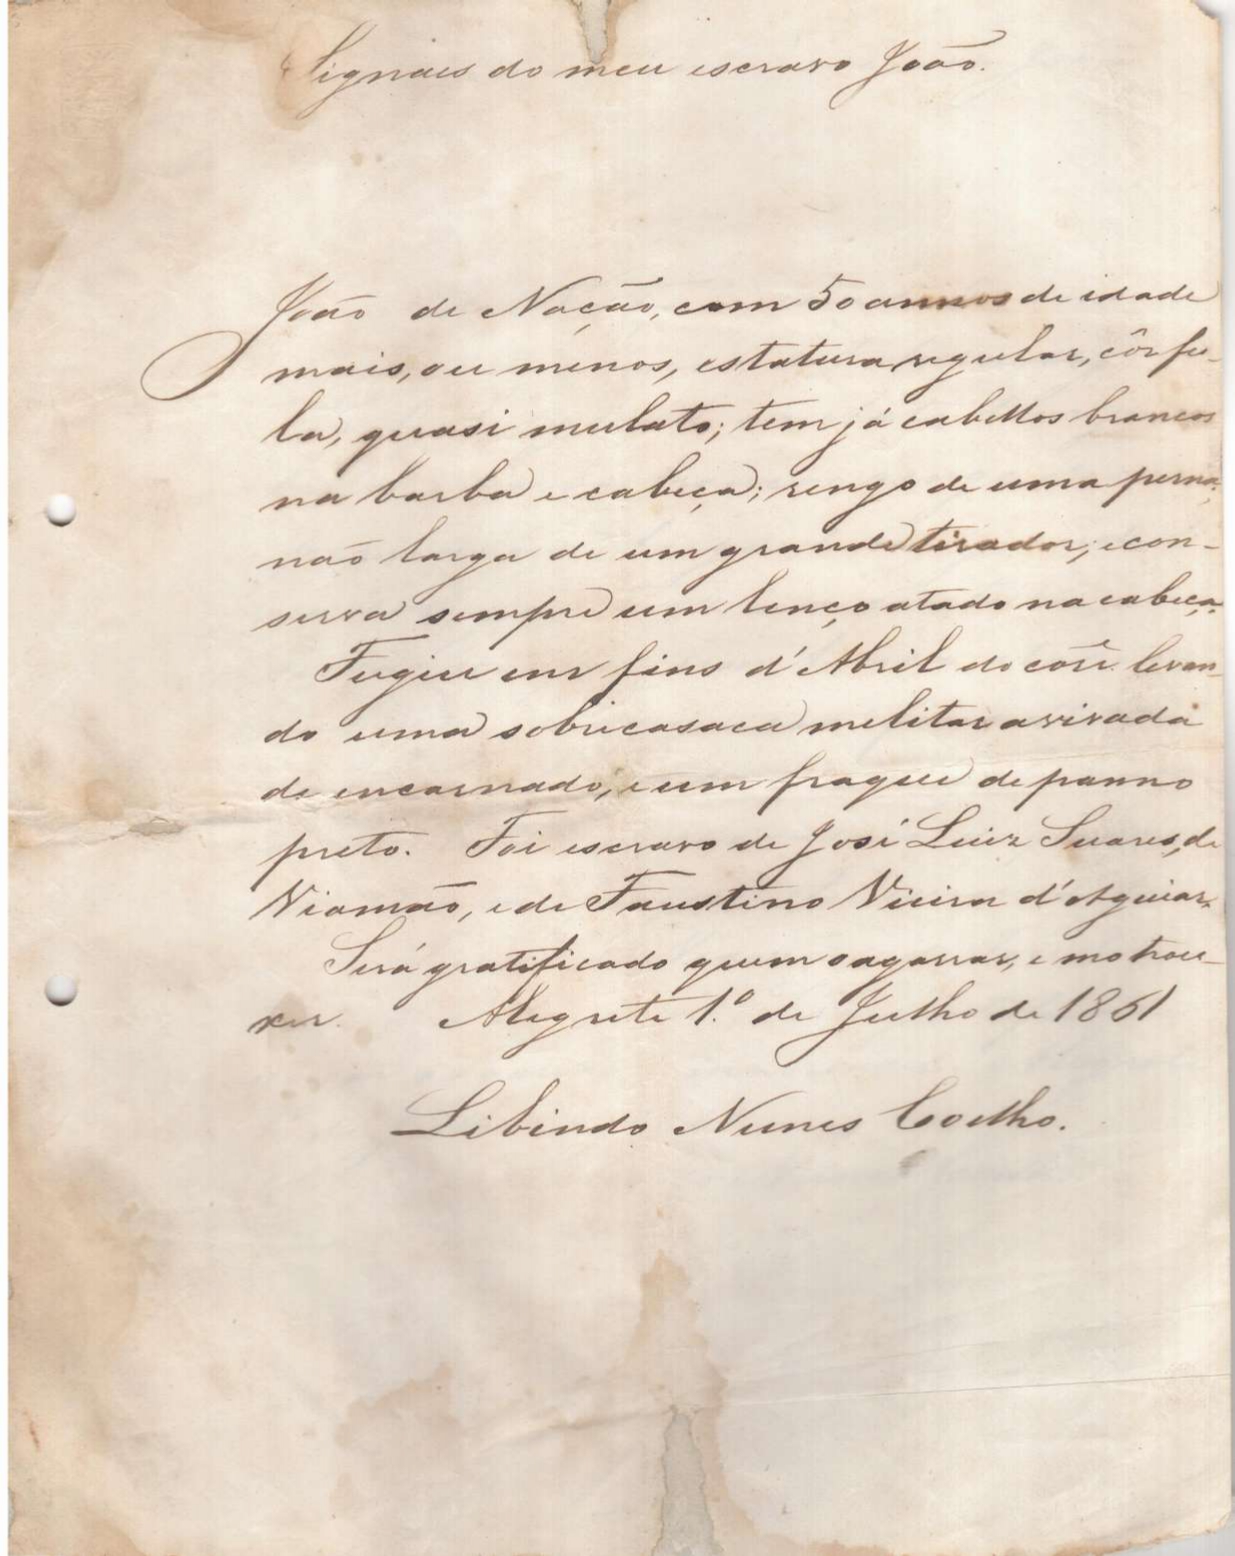 Signaes do meu escravo João.
João de Nação, com 50 annos de idade
mais, ou menos, estatura regular, côr fu-
la, quasi mulato; tem já cabellos brancos
na barba e cabeça; rengo de uma perna;
não larga de um grande tirador; e con-
serva sempre um lenço atado na cabeça.
Fugiu em fins d'Abril do corr. levan-
do uma sobricasaca melitar avivada
de encarnado, e um fraque de panno
preto. Foi escravo de José Luiz Suares, de
Viamão, e de Faustino Vieira d'Aguiar.
Será gratificado quem o agarrar, e mo trou-
xer. Alegrete 1.º de Julho de 1861
Libindo Nunes Coelho.